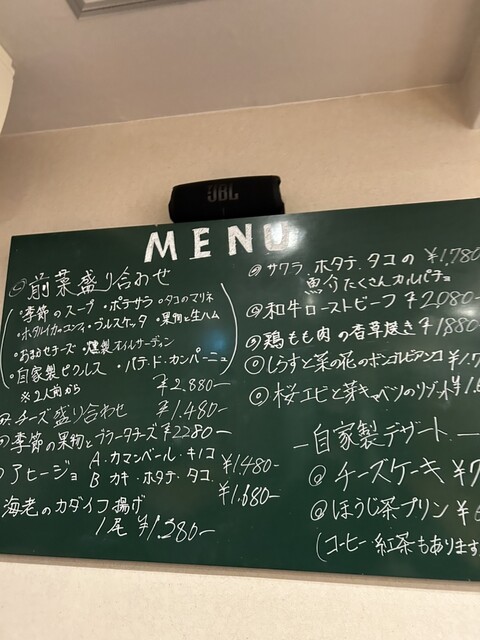 JBL
MENU
前菜盛り合わせ
・季節のスープ・ポテサラ・タコのマリネ
・ホタルイカのコンフィ・ブルスケッタ・果物と生ハム
・おまかせチーズ・燻製オイルサーディン
・自家製ピクルス・パテ・ド・カンパーニュ
※2人前から ¥2.880-
チーズ盛り合わせ ¥1.480-
季節の果物とブラータチーズ ¥2280-
アヒージョ A.カマンベール・キノコ ¥1480-
B カキ・ホタテ・タコ ¥1.680-
海老のカダイフ揚げ
1尾 ¥1.280-
サワラ、ホタテ、タコの ¥1,780
魚介たくさんカルパチョ
和牛ローストビーフ ¥2080-
鶏もも肉の香草焼き ¥1880-
しらすと菜の花のボンゴレビアンコ ¥1.7
桜エビと芽キャベツのリゾット ¥1.6
-自家製デザート-
チーズケーキ ¥7
ほうじ茶プリン ¥6
(コーヒー・紅茶もあります